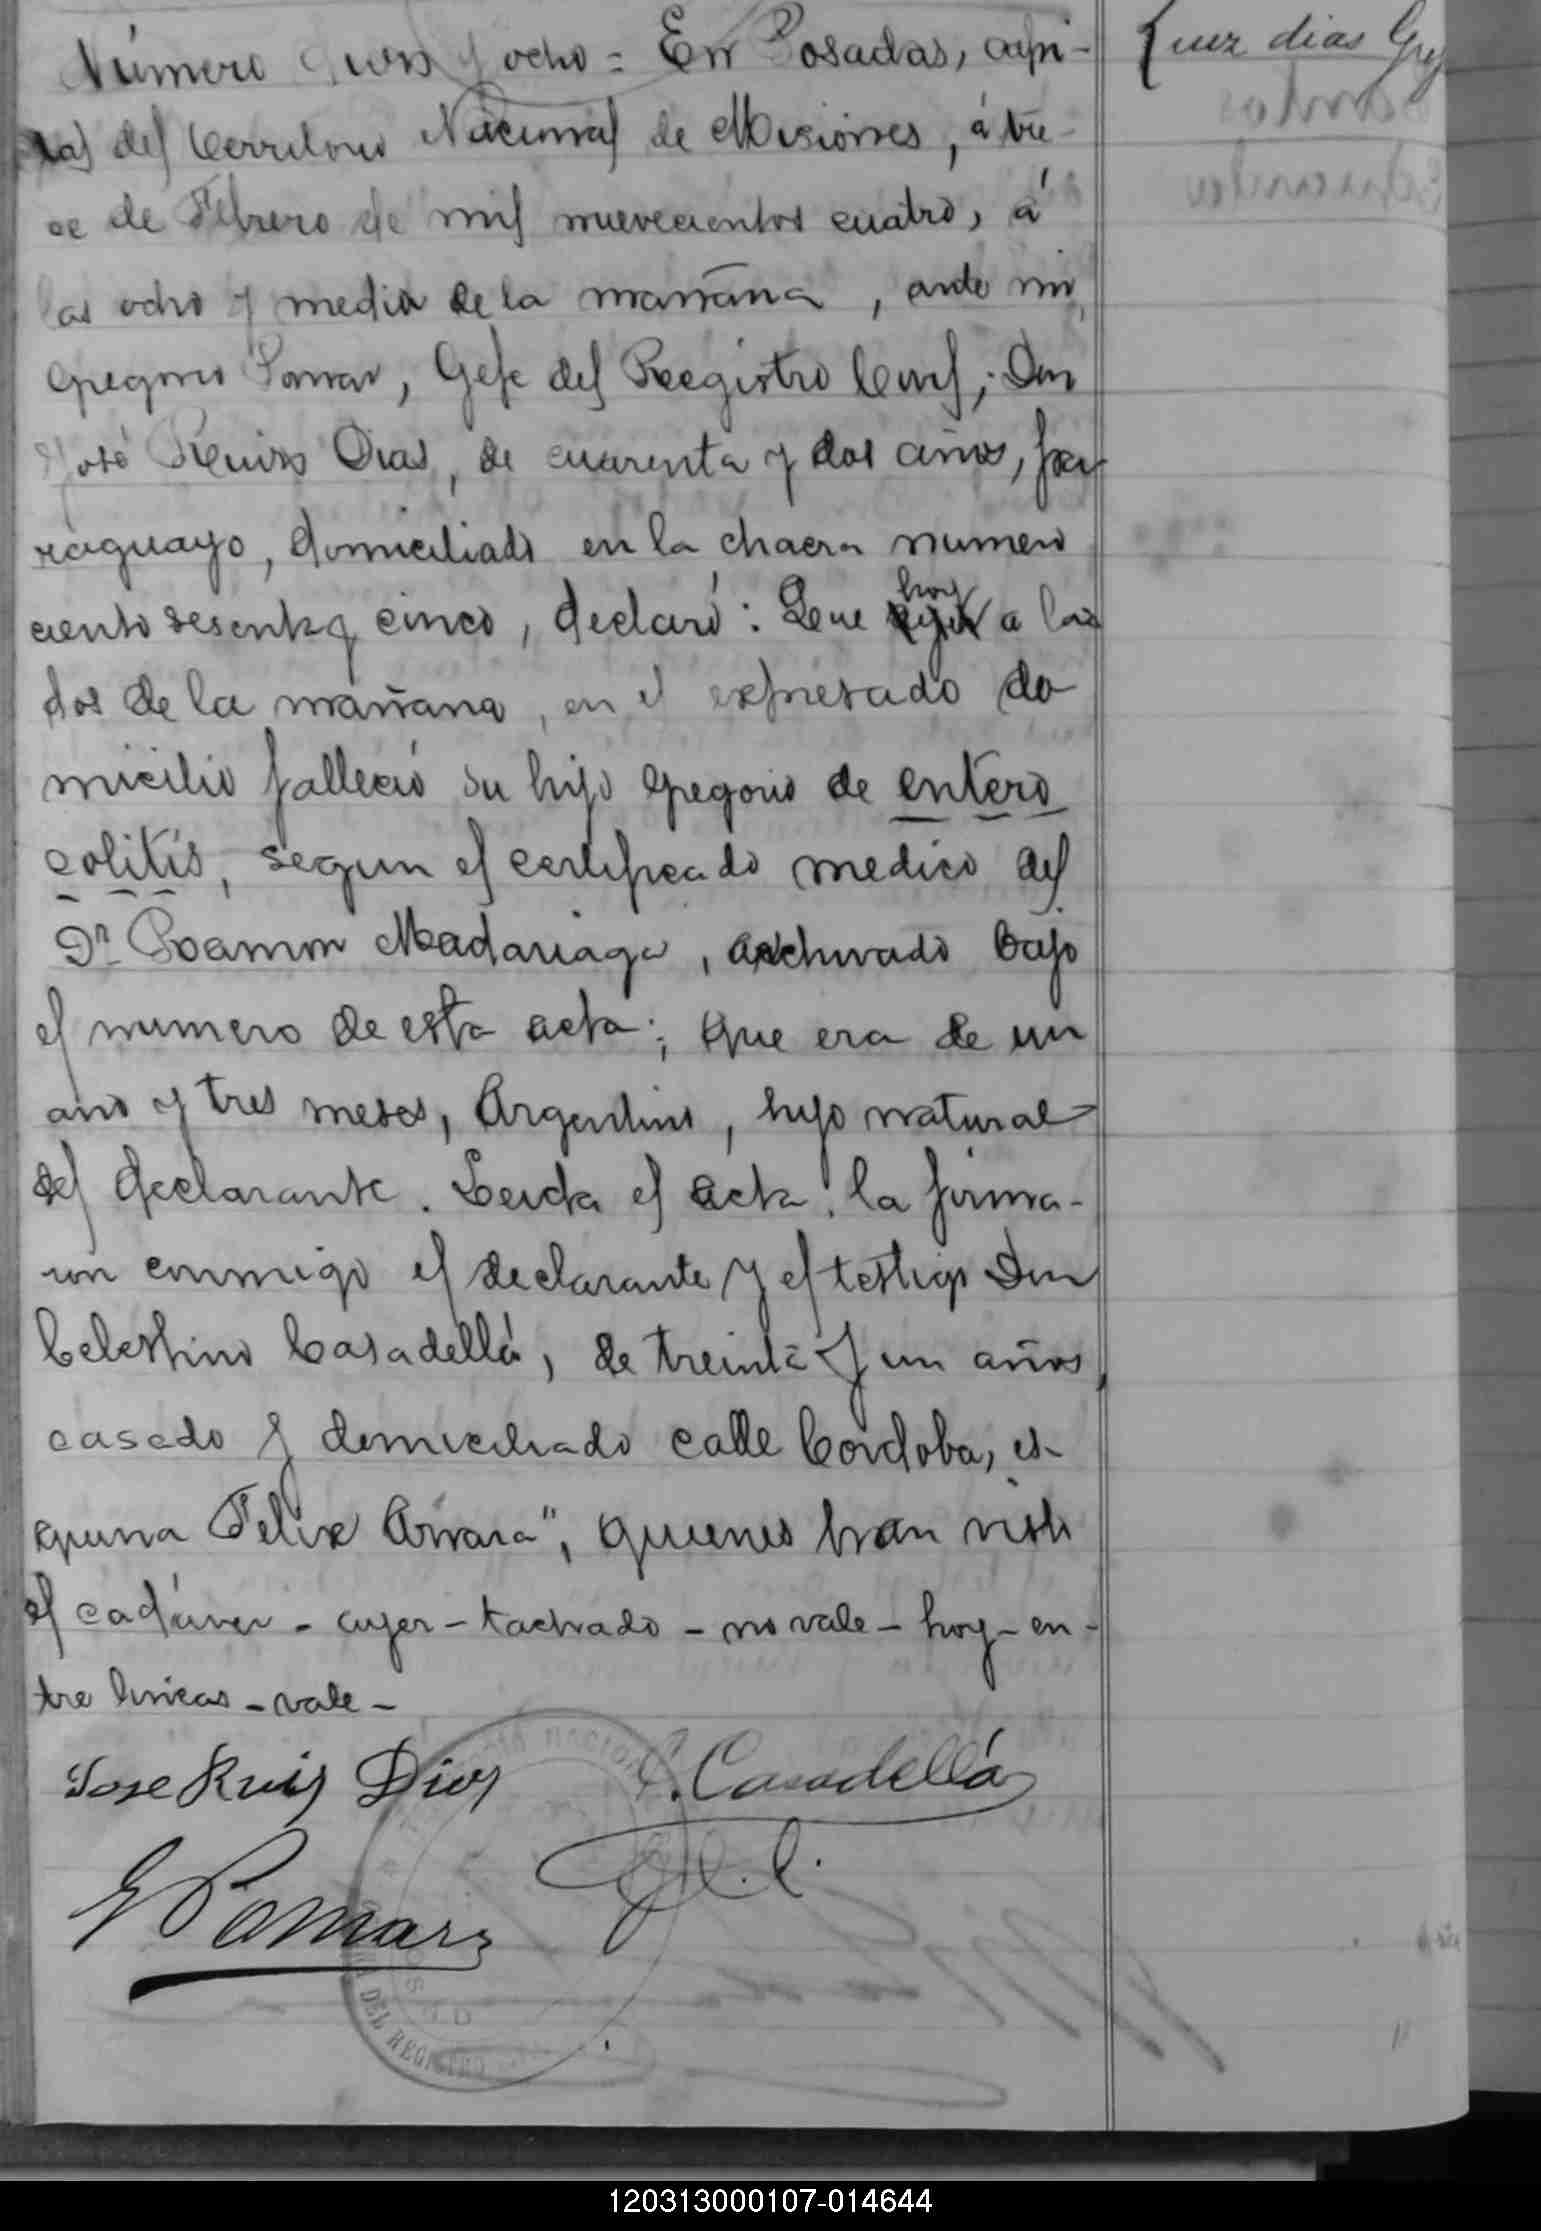 Número diez y ocho = En Posadas, capi-
tal del Territorio Nacional de Misiones, á tre-
ce de Febrero de mil novecientos cuatro, á
las ocho y media de la mañana, ante mi,
Gregorio Pomar, Gefe del Registro Civil; Don
José Ruiz Dias, de cuarenta y dos años, pa-
raguayo, domiciliado en la chacra numero
ciento sesenta y cinco, declaró: Que ayer hoy a las
dos de la mañana, en el expresado do
micilio falleció su hijo Gregorio de entero
colitis, segun el certificado medico del
Dr Ramon Madariaga, archivado bajo
el numero de esta acta; que era de un
año y tres meses, Argentino, hijo natural
del declarante. Leida el acta, la firma-
ron conmigo el declarante y el testigo Don
Celestino Casadellá, de treinta y un años,
casado y domiciliado calle Cordoba, es-
quina "Felix Azara", quienes han visto
el cadáver - ayer - tachado - no vale - hoy - en-
tre lineas - vale -
Jose Ruiz Dias
C. Casadellá
G Pomar
Ruiz dias Greg
DEL REGISTRO
120313000107-014644